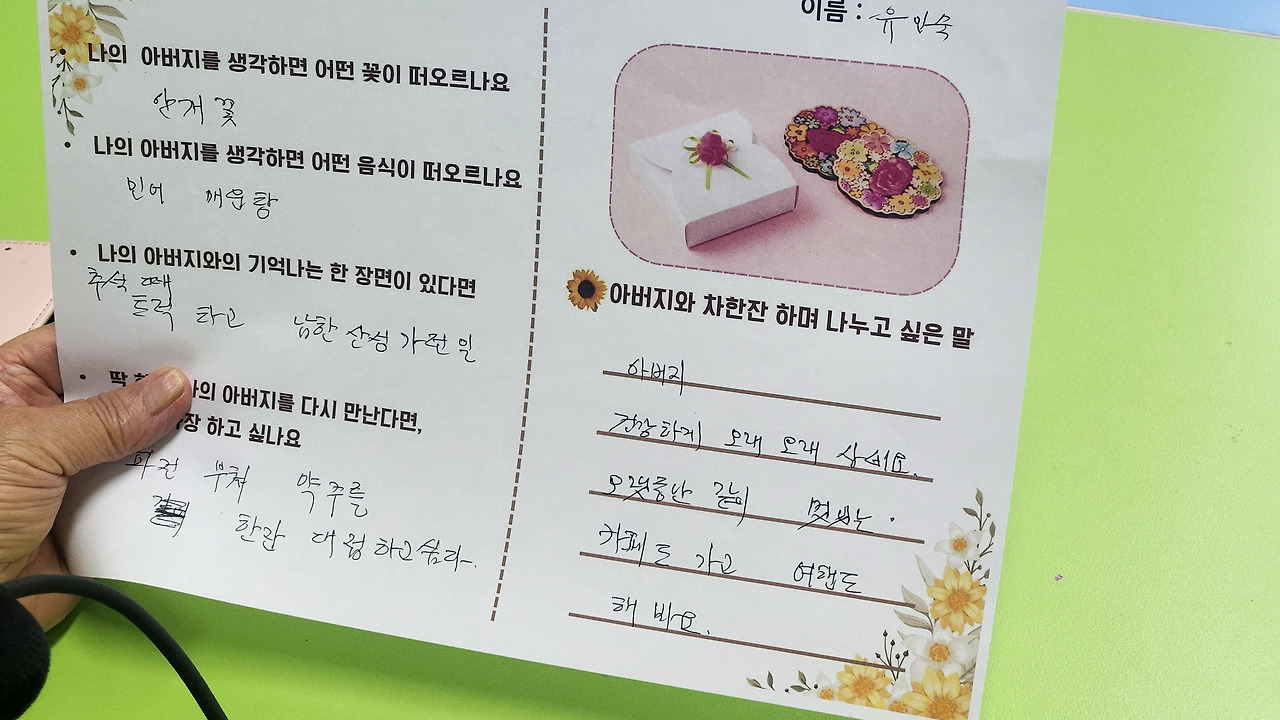 이름 : 유인숙
나의 아버지를 생각하면 어떤 꽃이 떠오르나요
안개 꽃
나의 아버지를 생각하면 어떤 음식이 떠오르나요
민어 매운탕
나의 아버지와의 기억나는 한 장면이 있다면
추석 때
트럭 타고 남한 산성 가던 일
딱 나의 아버지를 다시 만난다면,
장 하고 싶나요
파전 부쳐 약주를
한잔 대접하고 싶다.
아버지와 차한잔 하며 나누고 싶은 말
아버지
건강하게 오래 오래 사세요.
오랫동안 같이 멋있는
카페도 가고 여행도
해 봐요.